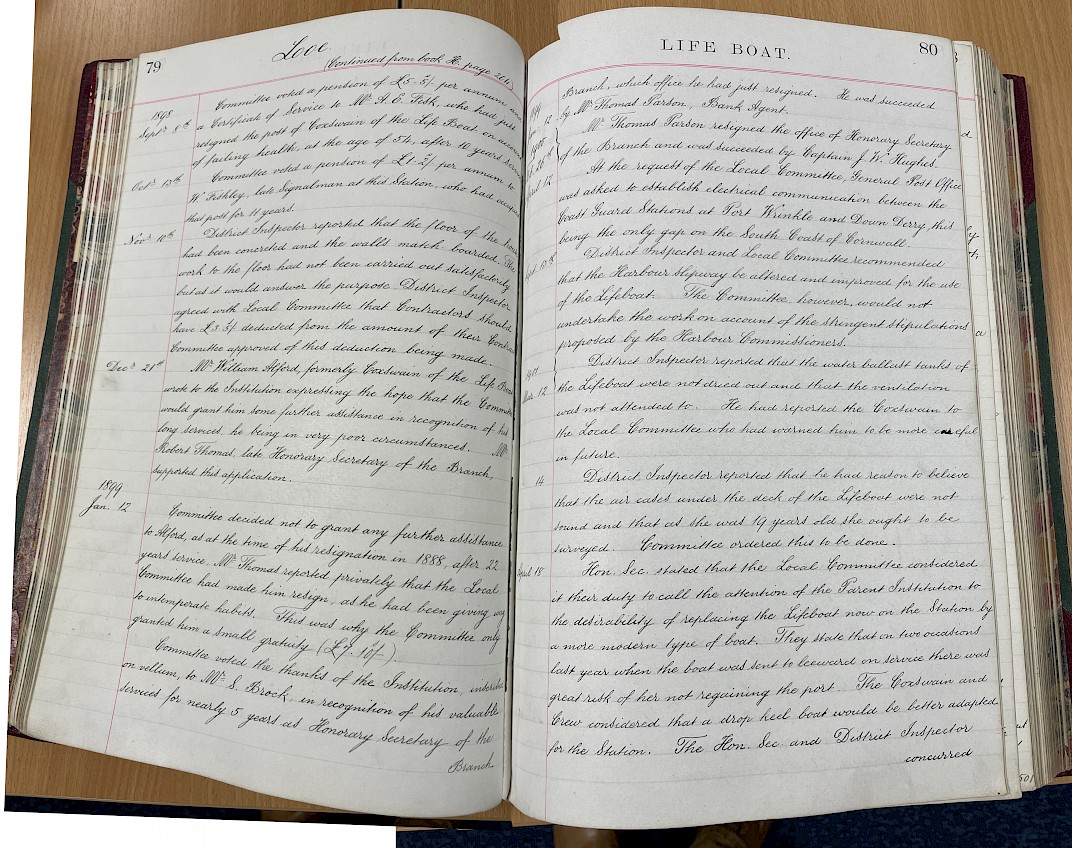 79
Looe
(Continued from book H. page 264)
1898
Committee voted a pension of £5. 5/ per annum and
Septr 8th
a Certificate of Service to Mr A. E. Fisk, who had just
resigned the post of Coxswain of the Life Boat on account
of failing health, at the age of 54, after 10 years service.
Octr 13th
Committee voted a pension of £1. 2/ per annum to
W. Pishley, late Signalman at this Station, who had occupied
that post for 11 years.
Novr 10th
District Inspector reported that the floor of the house
had been concreted and the walls match boarded. The
work to the floor had not been carried out satisfactorily
but as it would answer the purpose District Inspector
agreed with Local Committee that Contractors should
have £3. 3/ deducted from the amount of their Contract
Committee approved of this deduction being made.
Decr 21st
Mr William Alford, formerly Coxswain of the Life Boat
wrote to the Institution expressing the hope that the Committee
would grant him some further assistance in recognition of his
long services, he being in very poor circumstances. Mr
Robert Thomas, late Honorary Secretary of the Branch,
supported this application.
1899
Jan. 12
Committee decided not to grant any further assistance
to Alford, as at the time of his resignation in 1888, after 22
years service, Mr Thomas reported privately that the Local
Committee had made him resign, as he had been giving way
to intemperate habits. This was why the Committee only
granted him a small gratuity (£7. 10/-).
Committee voted the thanks of the Institution, inscribed
on vellum, to Mr S. Brock, in recognition of his valuable
services for nearly 5 years as Honorary Secretary of the
Branch
LIFE BOAT.
80
Branch, which office he had just resigned. He was succeeded
12
by Mr Thomas Parson, Bank Agent.
Mr Thomas Parson resigned the office of Honorary Secretary
of the Branch and was succeeded by Captain J. W. Hughes.
12
At the request of the Local Committee, General Post Office
was asked to establish electrical communication between the
Coast Guard Stations at Port Wrinkle and Down Derry this
being the only gap on the South Coast of Cornwall.
District Inspector and Local Committee recommended
that the Harbour slipway be altered and improved for the use
of the Lifeboat. The Committee, however, would not
undertake the work on account of the stringent stipulations
proposed by the Harbour Commissioners.
District Inspector reported that the water ballast tanks of
12
the Lifeboat were not dried out and that the ventilation
was not attended to. He had reported the Coxswain to
the Local Committee who had warned him to be more careful
in future.
14
District Inspector reported that he had reason to believe
that the air cases under the deck of the Lifeboat were not
sound and that as she was 19 years old she ought to be
surveyed. Committee ordered this to be done.
April 18
Hon. Sec. stated that the Local Committee considered
it their duty to call the attention of the Parent Institution to
the desirability of replacing the Lifeboat now on the Station by
a more modern type of boat. They state that on two occasions
last year when the boat was sent to leeward on service there was
great risk of her not regaining the port. The Coxswain and
Crew considered that a drop keel boat would be better adapted
for the Station. The Hon. Sec. and District Inspector
concurred